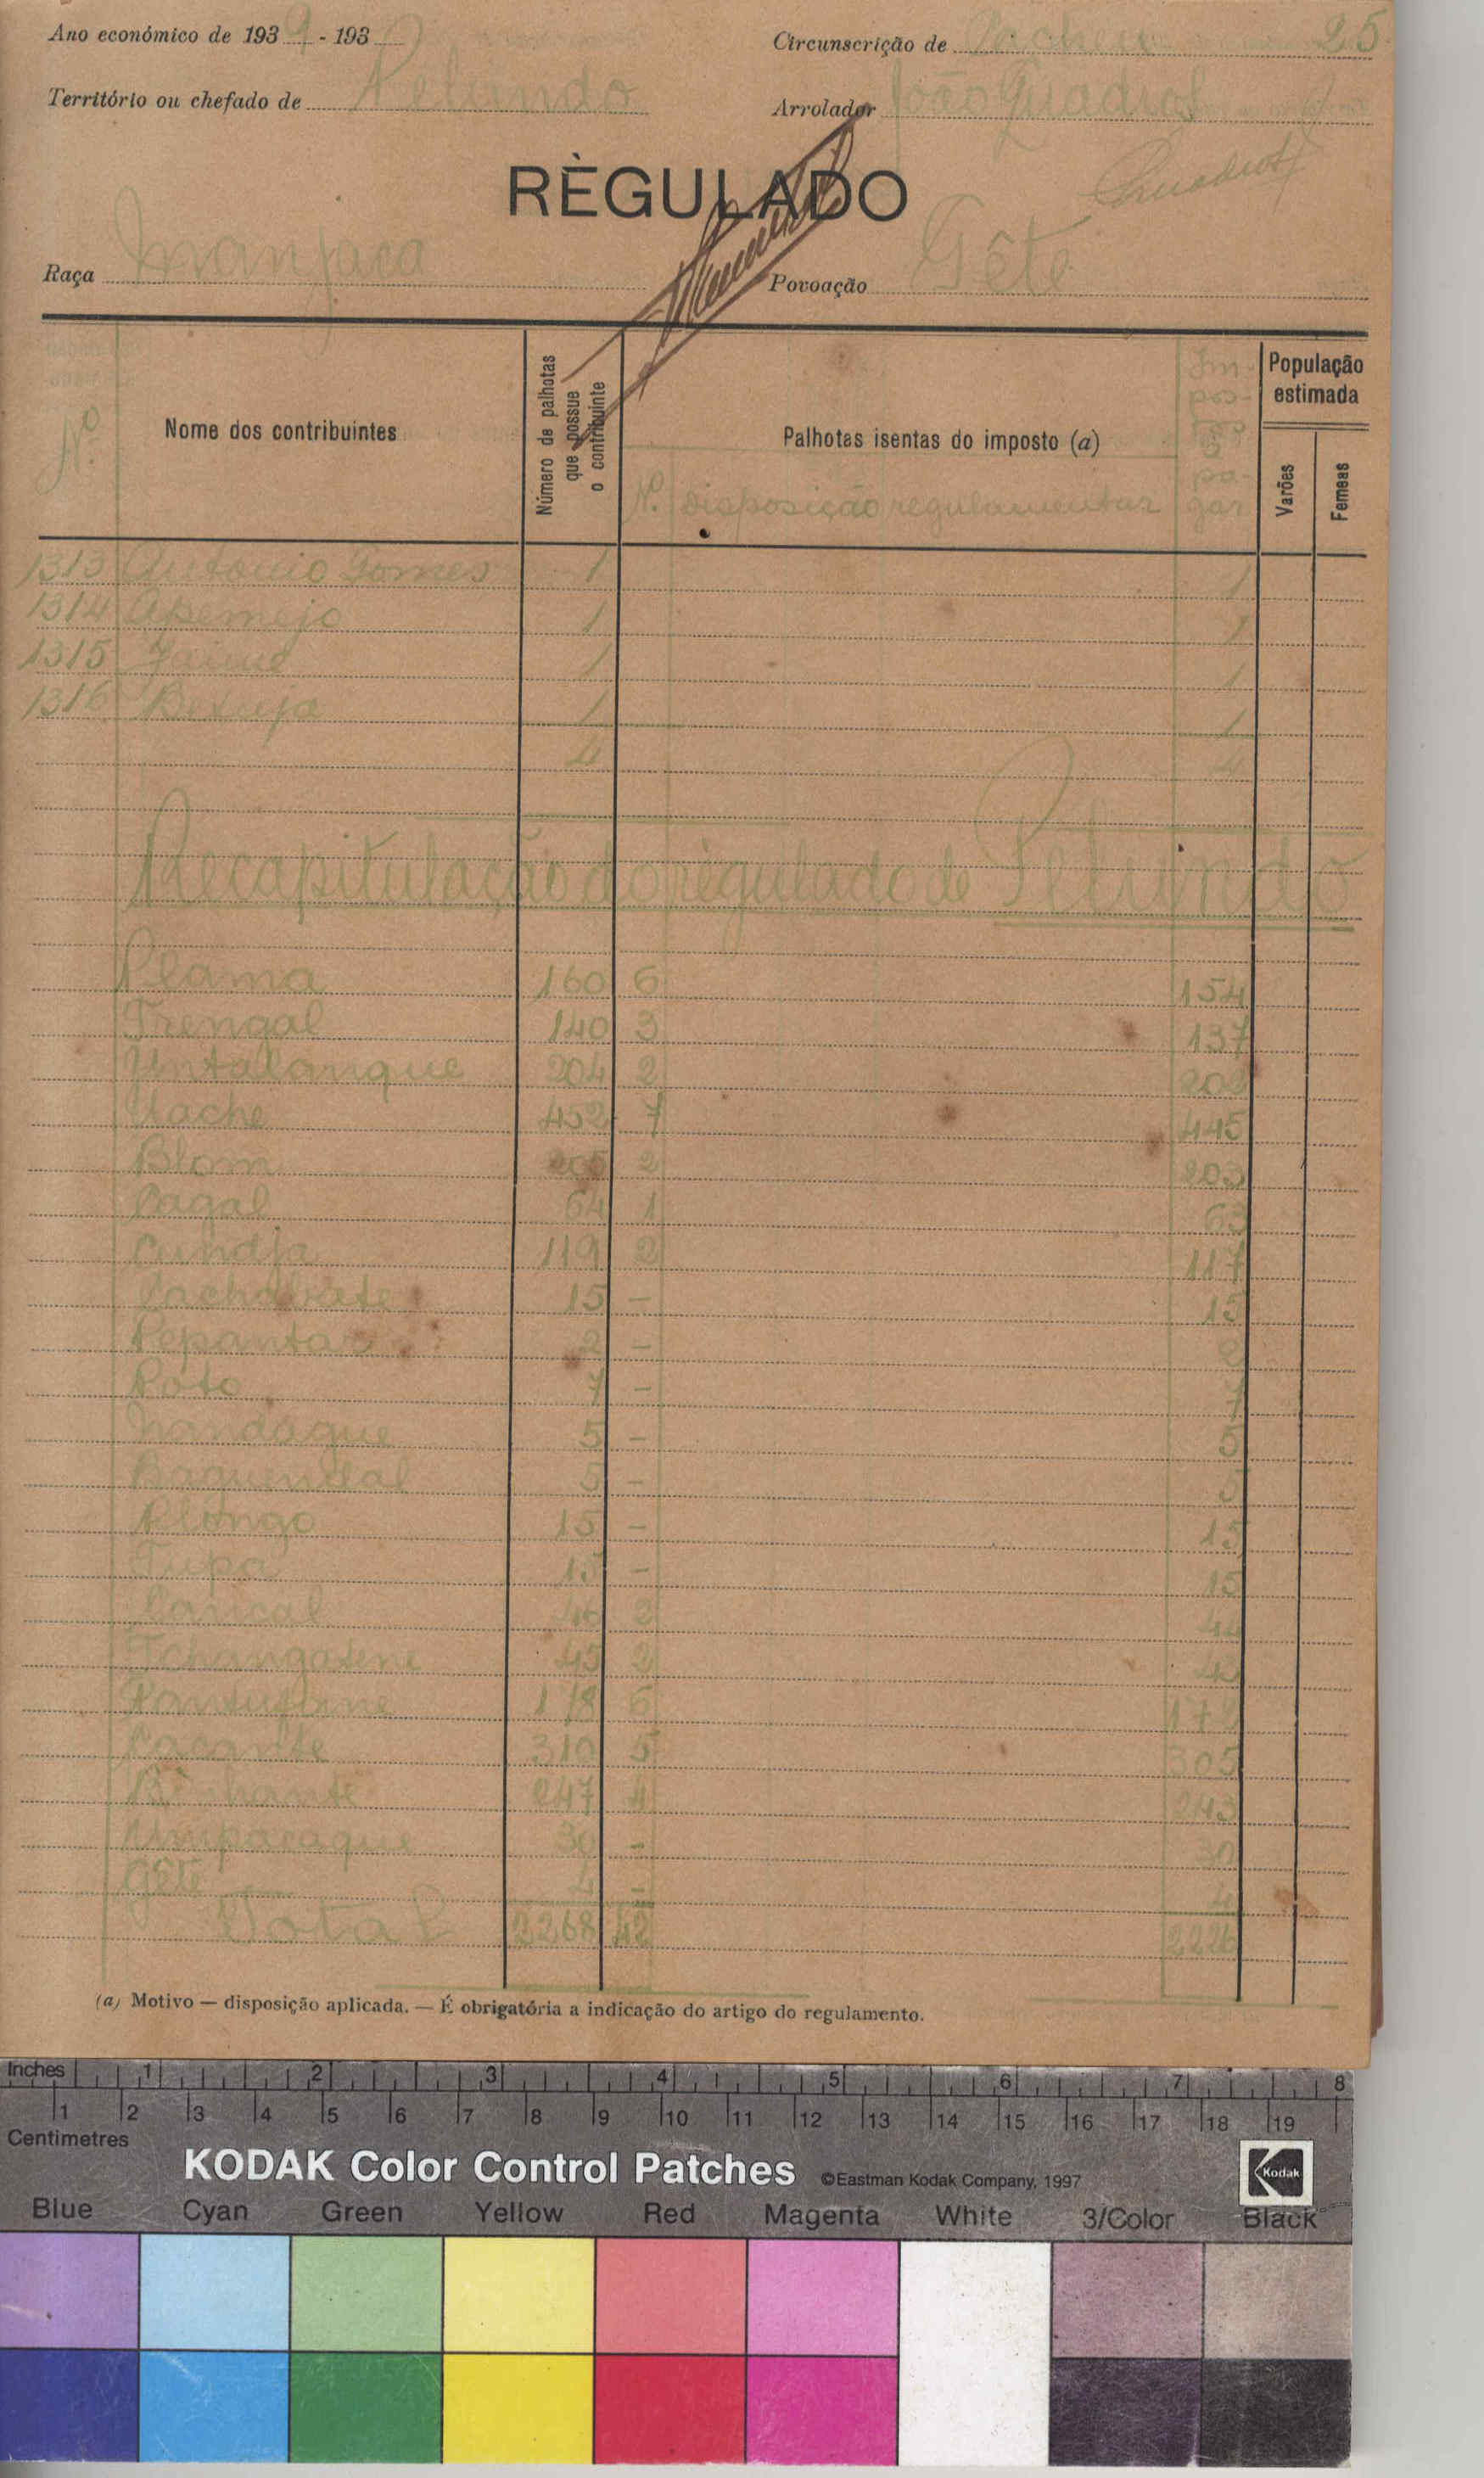 Ano económico de 1939 - 193
Circunscrição de Cacheu 25
Território ou chefado de Pelundo
Arrolador João Quadrol
RÈGULADO
Raça Manjaca
Povoação Gête
N.º Nome dos contribuintes Número de palhotas que possue o contribuinte Palhotas isentas do imposto (a) Impostos a pagar População estimada
N.º disposição regulamentar Varões Femeas
1313 Antonio Gomes 1 1
1314 Apemejo 1 1
1315 Jaime 1 1
1316 Betuja 1 1
4 4
Recapitulação do règulado de Pelundo
Plama 160 6 154
Trengal 140 3 137
Untalanque 204 2 202
Uache 452 7 445
Blom 205 2 203
Cagal 64 1 63
Cundja 119 2 117
Cachobate 15 - 15
Pepanta 2 - 2
Poto 7 - 7
Nandaque 5 - 5
Baquendal 5 - 5
Plongo 15 - 15
Tupa 15 - 15
Canical 46 2 44
Tchangatene 45 2 43
178 6 172
Cacante 310 5 305
Binhante 247 4 243
Umpacaque 30 - 30
Gête 4 - 4
Total 2268 42 2226
(a) Motivo — disposição aplicada. — É obrigatória a indicação do artigo do regulamento.
Inches 1 2 3 4 5 6 7 8
1 2 3 4 5 6 7 8 9 10 11 12 13 14 15 16 17 18 19
Centimetres
KODAK Color Control Patches ©Eastman Kodak Company, 1997 Kodak
Blue Cyan Green Yellow Red Magenta White 3/Color Black